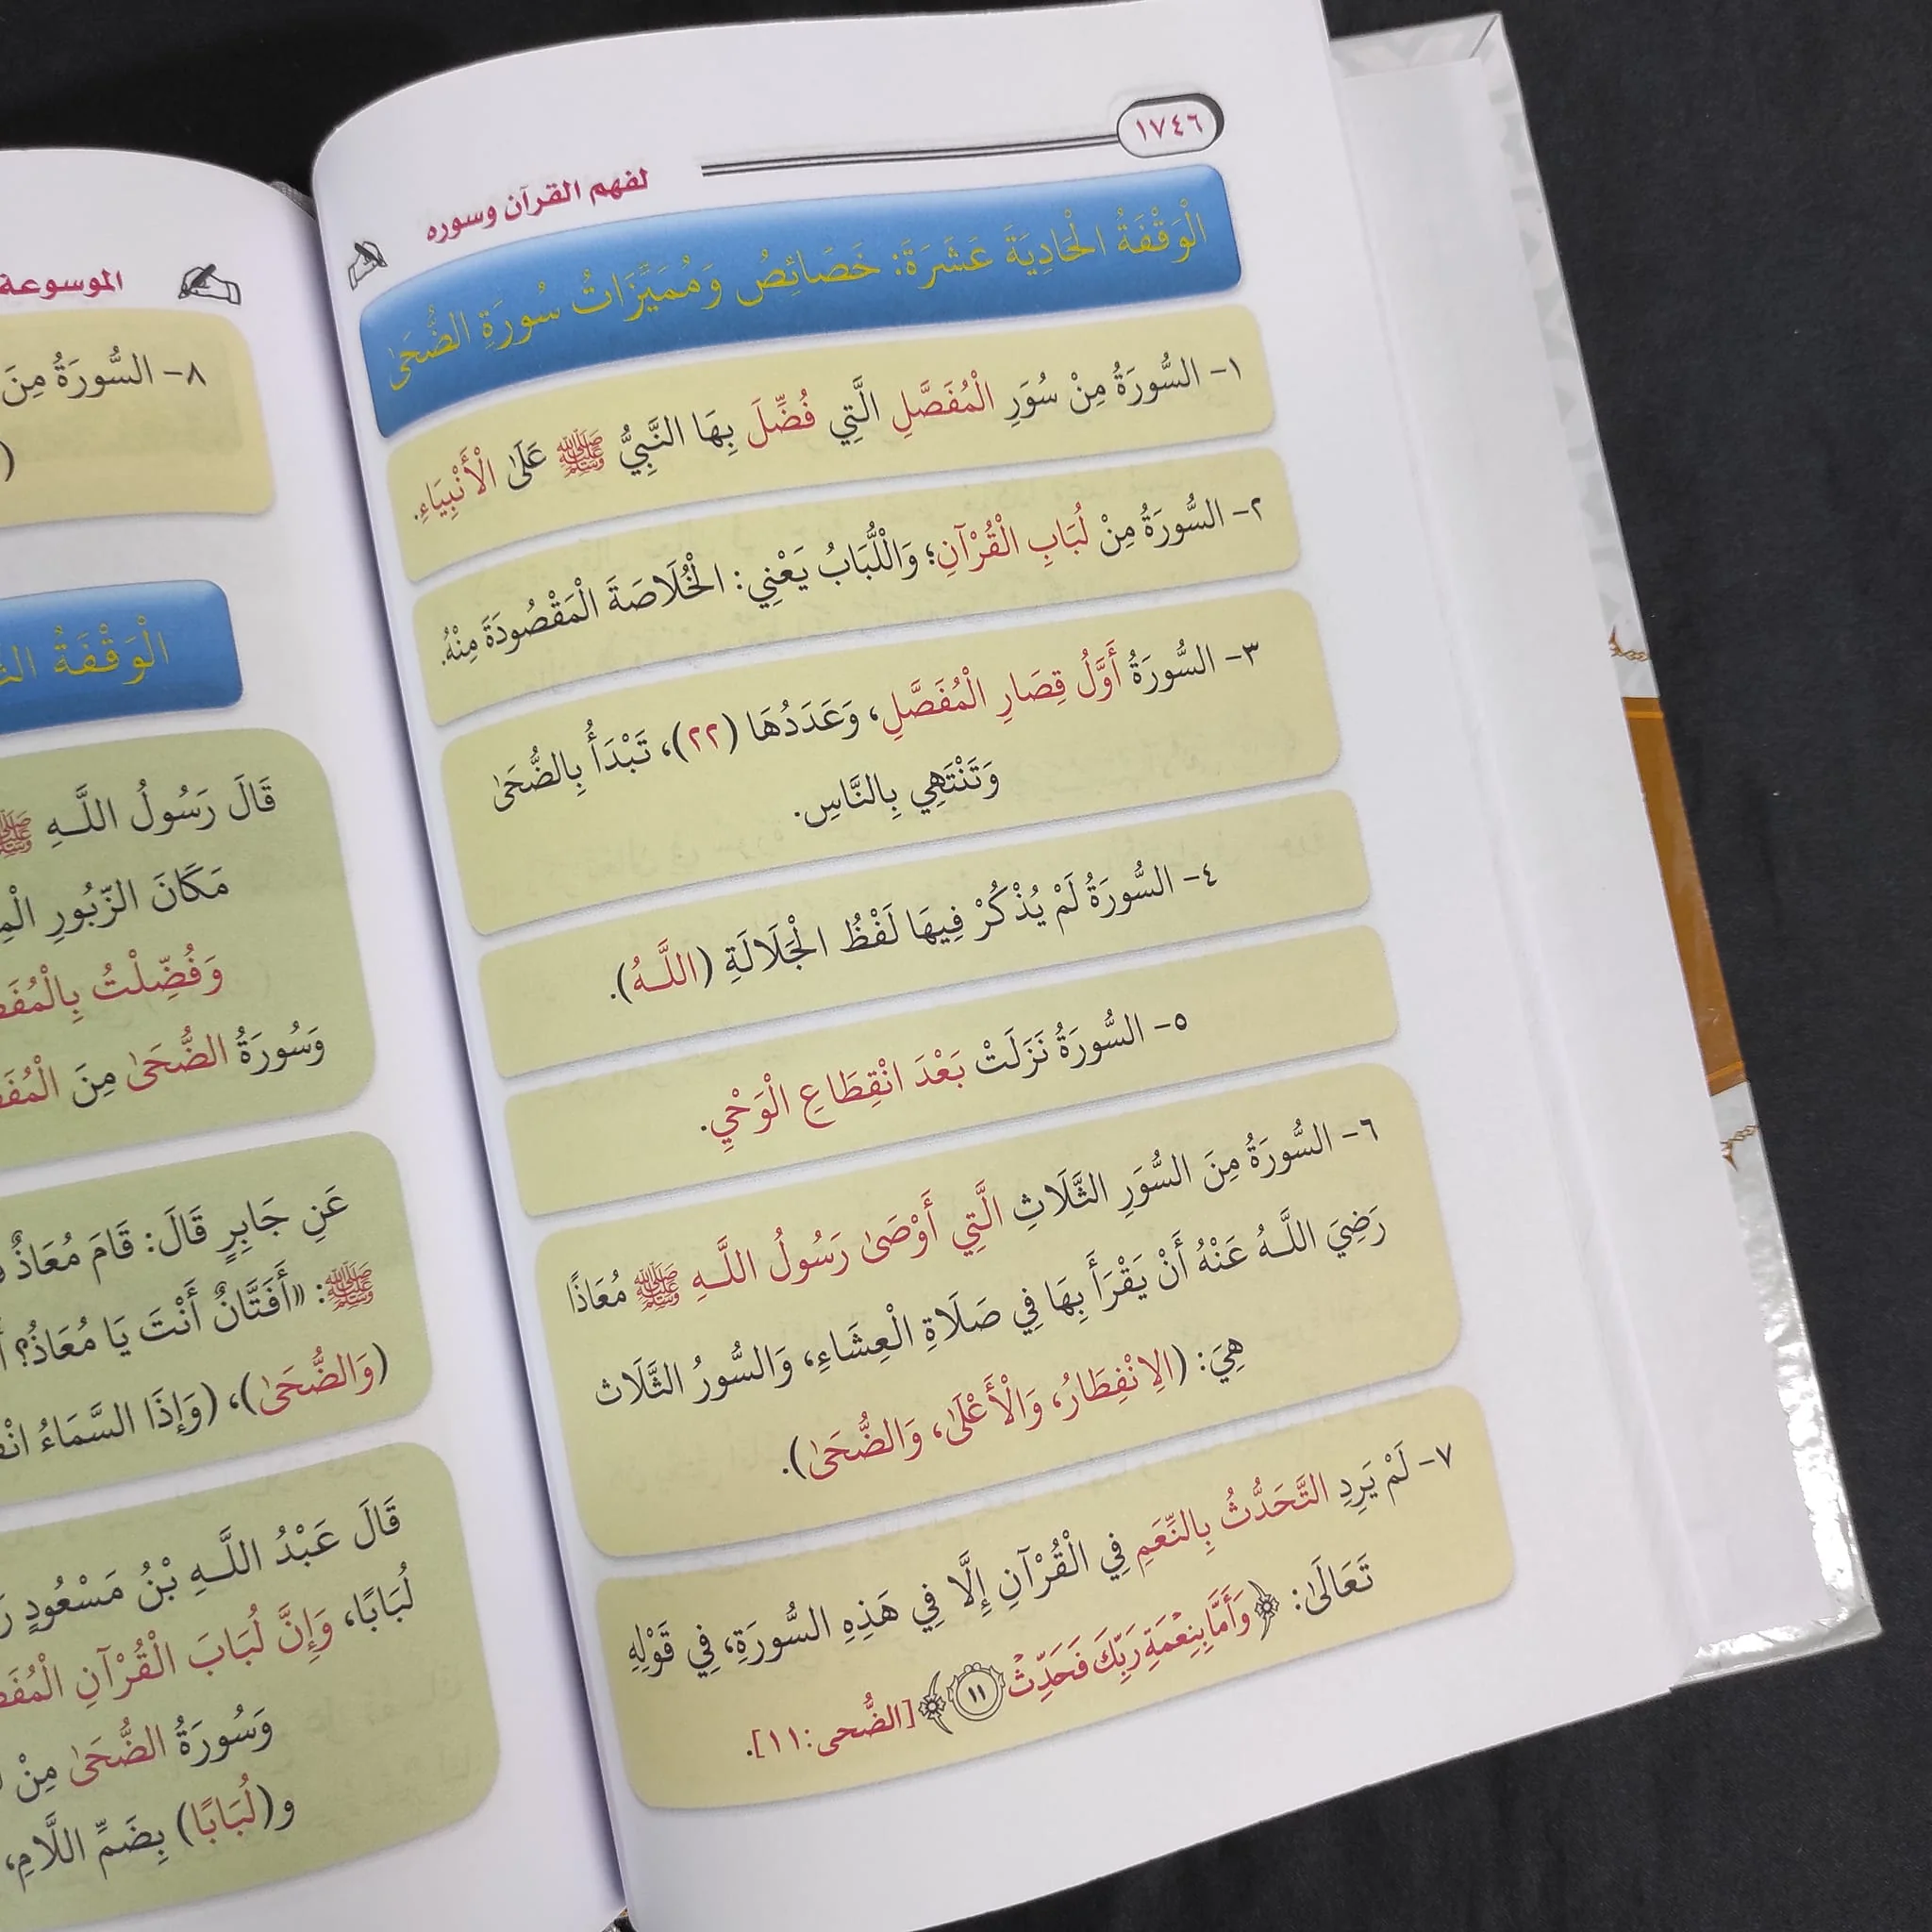 ١٧٤٦
لفهم القرآن وسوره
الْوَقْفَةُ الْحَادِيَةَ عَشَرَةَ: خَصَائِصُ وَمُمَيِّزَاتُ سُورَةِ الضُّحَىٰ
١- السُّورَةُ مِنْ سُوَرِ الْمُفَصَّلِ الَّتِي فُضِّلَ بِهَا النَّبِيُّ ﷺ عَلَى الْأَنْبِيَاءِ.
٢- السُّورَةُ مِنْ لُبَابِ الْقُرْآنِ؛ وَاللُّبَابُ يَعْنِي: الْخُلَاصَةَ الْمَقْصُودَةَ مِنْهُ.
٣- السُّورَةُ أَوَّلُ قِصَارِ الْمُفَصَّلِ، وَعَدَدُهَا (٢٢)، تَبْدَأُ بِالضُّحَىٰ
وَتَنْتَهِي بِالنَّاسِ.
٤- السُّورَةُ لَمْ يُذْكَرْ فِيهَا لَفْظُ الْجَلَالَةِ (اللَّـهُ).
٥- السُّورَةُ نَزَلَتْ بَعْدَ انْقِطَاعِ الْوَحْيِ.
٦- السُّورَةُ مِنَ السُّوَرِ الثَّلَاثِ الَّتِي أَوْصَىٰ رَسُولُ اللَّـهِ ﷺ مُعَاذًا
رَضِيَ اللَّـهُ عَنْهُ أَنْ يَقْرَأَ بِهَا فِي صَلَاةِ الْعِشَاءِ، وَالسُّورُ الثَّلَاث
هِيَ: (الِانْفِطَارُ، وَالْأَعْلَىٰ، وَالضُّحَىٰ).
٧- لَمْ يَرِدِ التَّحَدُّثُ بِالنِّعَمِ فِي الْقُرْآنِ إِلَّا فِي هَذِهِ السُّورَةِ، فِي قَوْلِهِ
تَعَالَىٰ: ﴿وَأَمَّا بِنِعْمَةِ رَبِّكَ فَحَدِّثْ ١١﴾ [الضُّحى:١١].
الموسوعة
٨- السُّورَةُ مِنَ
(
الْوَقْفَةُ
قَالَ رَسُولُ اللَّـهِ ﷺ
مَكَانَ الزَّبُورِ
وَفُضِّلْتُ
وَسُورَةُ الضُّحَىٰ مِنَ
عَنِ جَابِرٍ قَالَ: قَامَ مُعَاذٌ
ﷺ: «أَفَتَّانٌ أَنْتَ يَا مُعَاذُ؟
(وَالضُّحَىٰ)، (وَإِذَا السَّمَاءُ
قَالَ عَبْدُ اللَّـهِ بْنُ مَسْعُودٍ
لُبَابًا، وَإِنَّ لُبَابَ الْقُرْآنِ
وَسُورَةُ الضُّحَىٰ مِنْ
و(لُبَابًا) بِضَمِّ اللَّامِ،